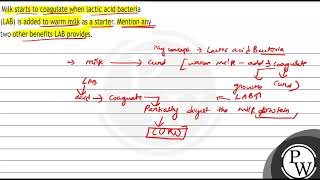 Milk starts to coagulate when lactic acid bacteria
(LAB) is added to warm milk as a starter. Mention any
two other benefits LAB provides.
key concept → Lactic acid Bacteria
→ milk → curd [warm milk - add → coagulate
growth curd
LAB
acid → coagulate LABS
Partially digest the milk protein
CURD
PW